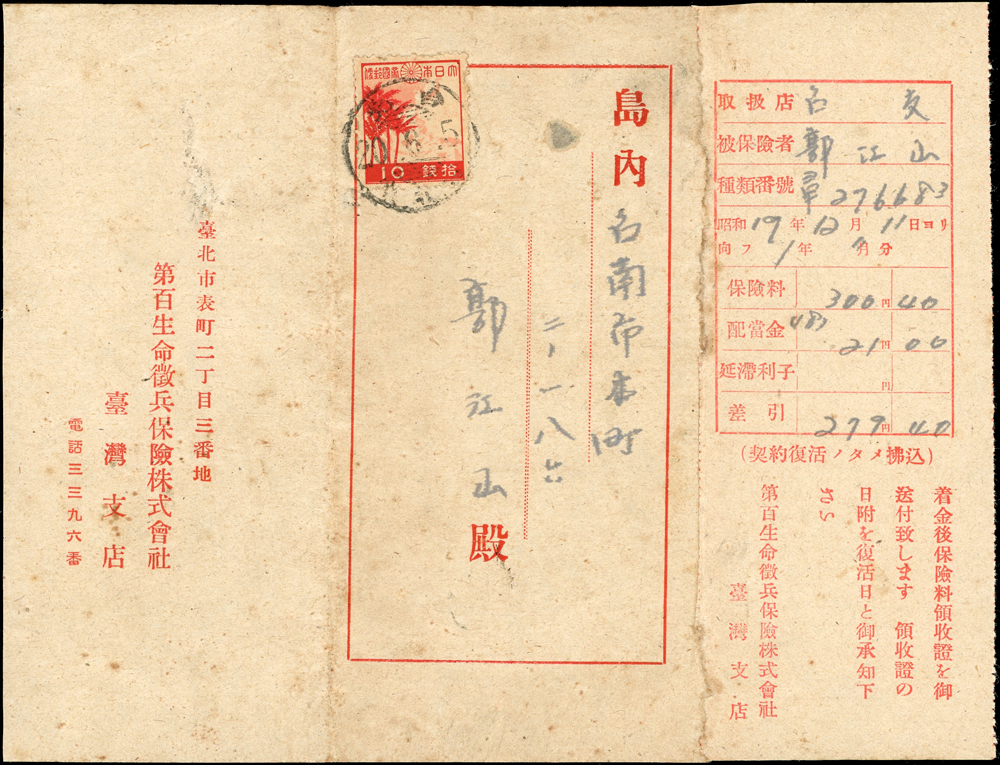 着金後保險料領收證を御
送付致します 領收證の
日附を復活日と御承知下
さい
第百生命徵兵保險株式會社
臺灣支店
取扱店 台 支
被保險者 郭江山
種類番號 尋276683
昭和19年12月11日ヨリ
向フ1年 月分
保險料 300円40
配當金 21円00
延滯利子 円
差引 279円40
(契約復活ノタメ拂込)
大日本帝國郵便
拾錢
10
島內
台南市本町
二ノ一八六
郭江山殿
臺北市表町二丁目三番地
第百生命徵兵保險株式會社
臺灣支店
電話三三九六番